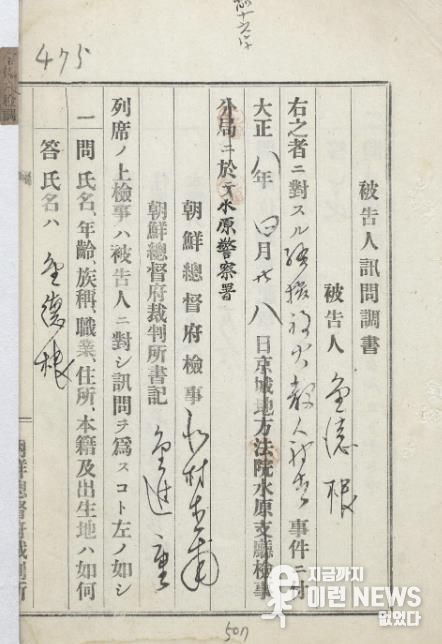 475
被告人訊問調書
被告人 金德根
右之者ニ對スル騷擾放火殺人 事件ニ付
大正八年四月廿八日京城地方法院水原支廳檢事
分局ニ於テ水原警察署
朝鮮總督府檢事
朝鮮總督府裁判所書記
列席ノ上檢事ハ被告人ニ對シ訊問ヲ爲スコト左ノ如シ
一 問 氏名、年齡、族稱、職業、住所、本籍及出生地ハ如何
答 氏名ハ 金德根
朝鮮總督府裁判所
507
지금까지
e 이런 NEWS
없었다